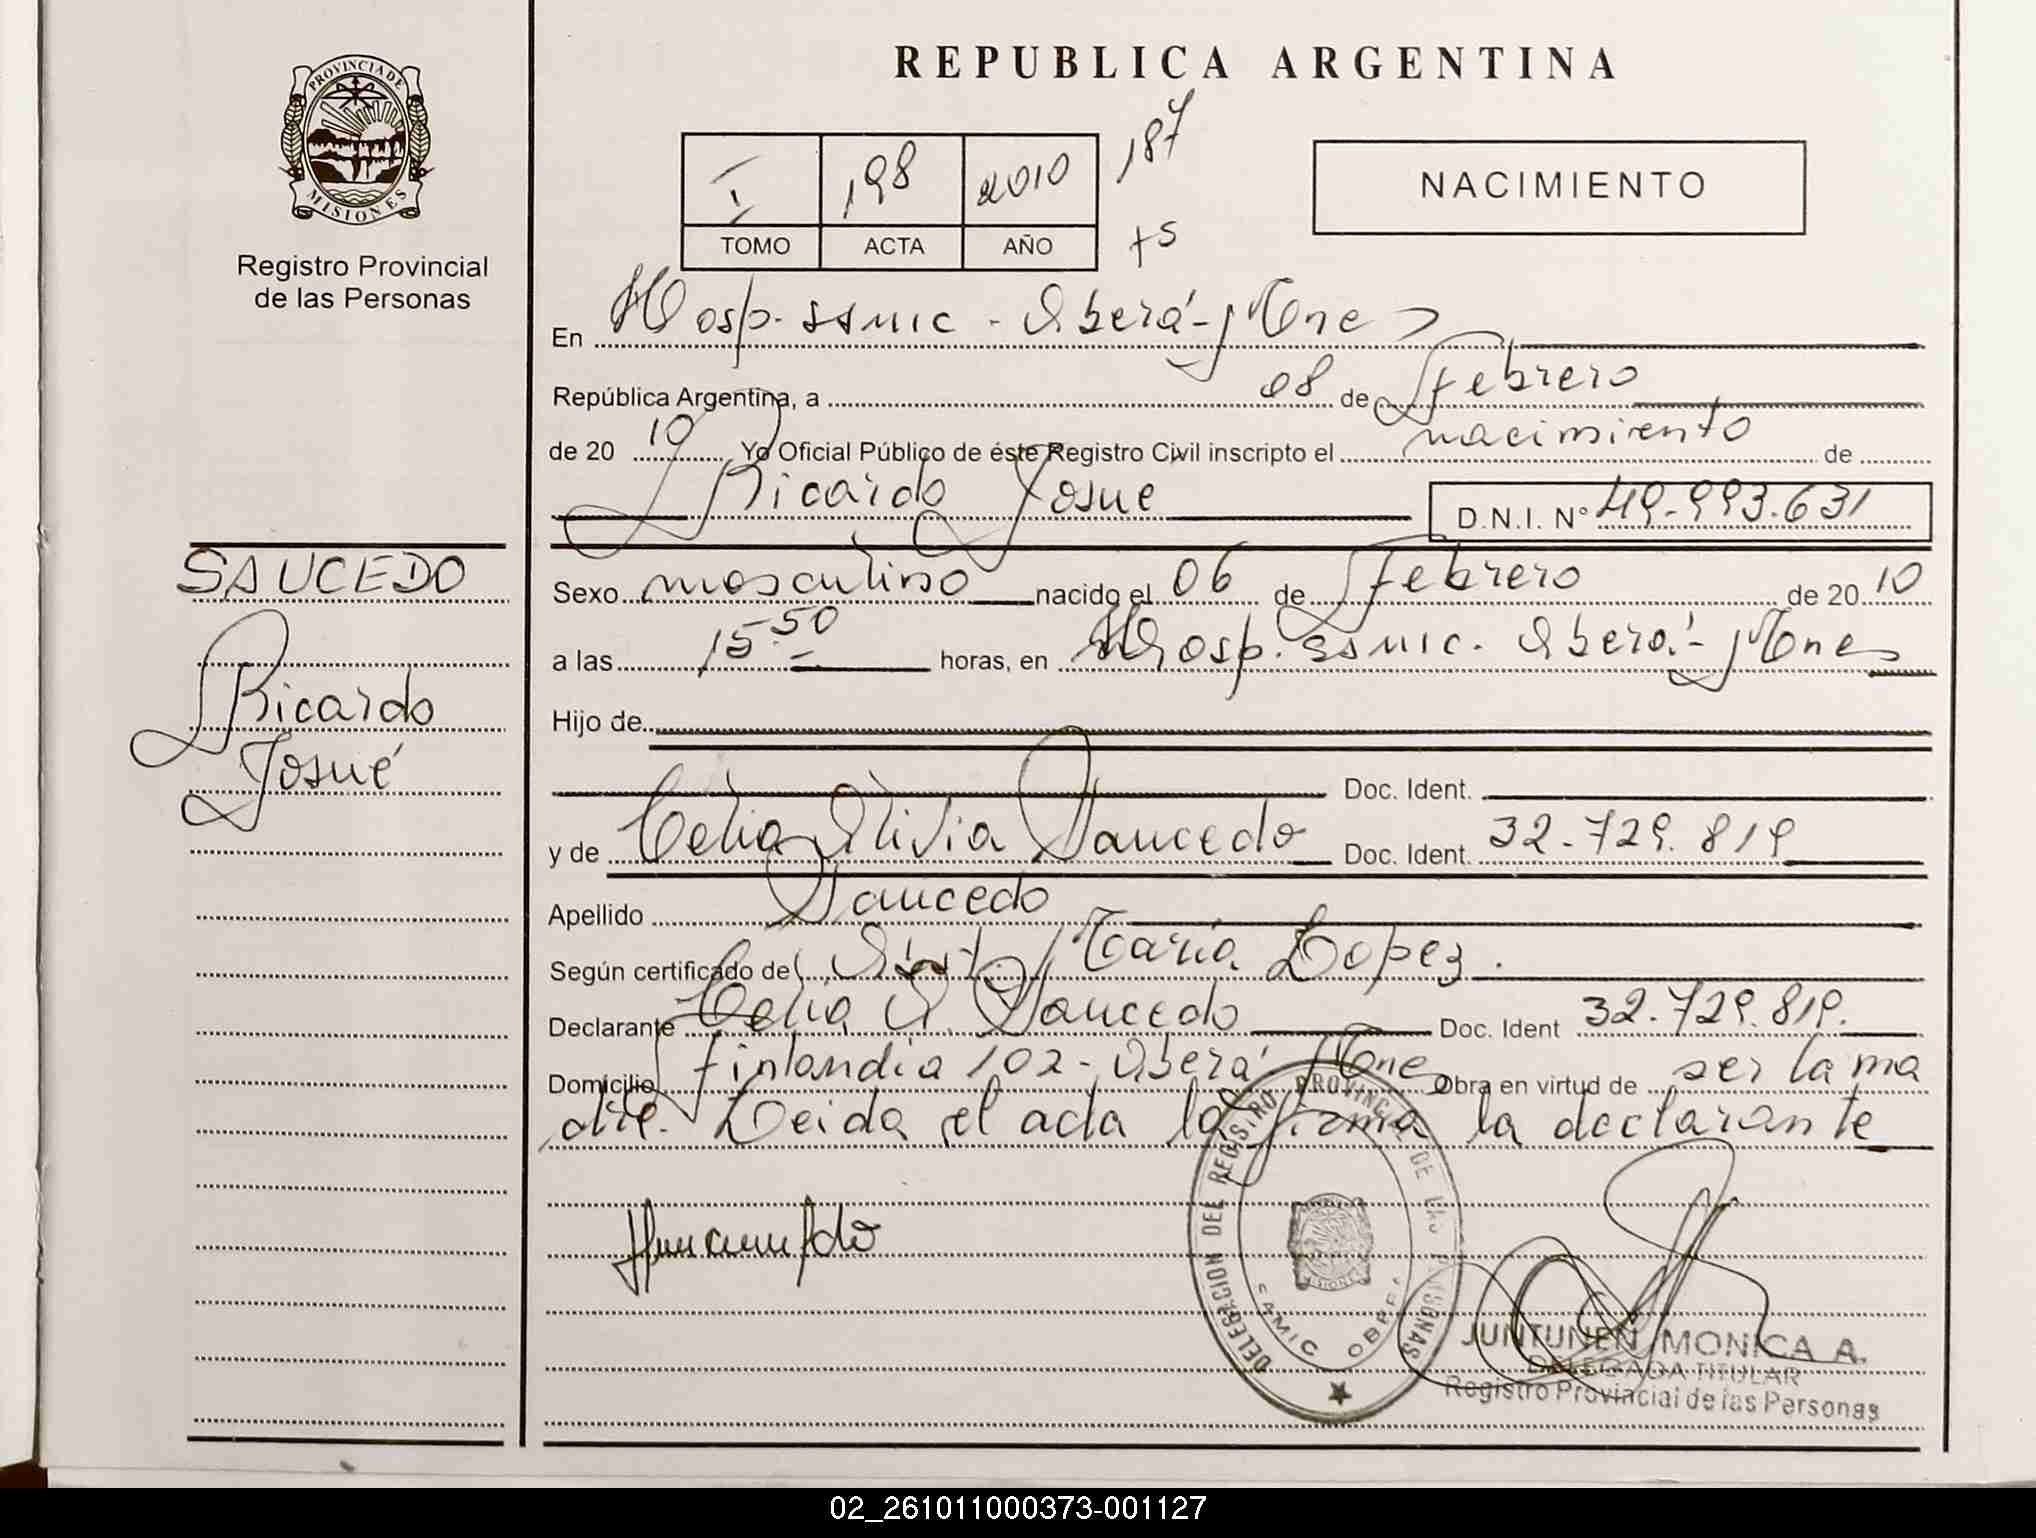 PROVINCIA DE
MISIONES
Registro Provincial
de las Personas
SAUCEDO
Ricardo
Josué
REPUBLICA ARGENTINA
I 198 2010 187
TOMO ACTA AÑO
NACIMIENTO
En Hosp. SAMIC - Oberá - Mnes
República Argentina, a 08 de Febrero
de 20 10 Yo Oficial Público de éste Registro Civil inscripto el nacimiento de
Ricardo Josue D.N.I. N° 49.993.631
Sexo masculino nacido el 06 de Febrero de 20 10
a las 15:50 horas, en Hosp. SAMIC. Oberá - Mnes
Hijo de
Doc. Ident.
y de Celia Olivia Saucedo Doc. Ident. 32.729.819
Apellido Saucedo
Según certificado de María Lopez.
Declarante Celia O. Saucedo Doc. Ident 32.729.819.
Domicilio Finlandia 102 - Oberá Mnes Obra en virtud de ser la ma
dre. Leida el acta la firma la declarante
DELEGACION DEL REGISTRO PROVINCIAL DE LAS PERSONAS
SAMIC OBERA
MISIONES
JUNTUNEN MONICA A.
DELEGADA TITULAR
Registro Provincial de las Personas
02_261011000373-001127